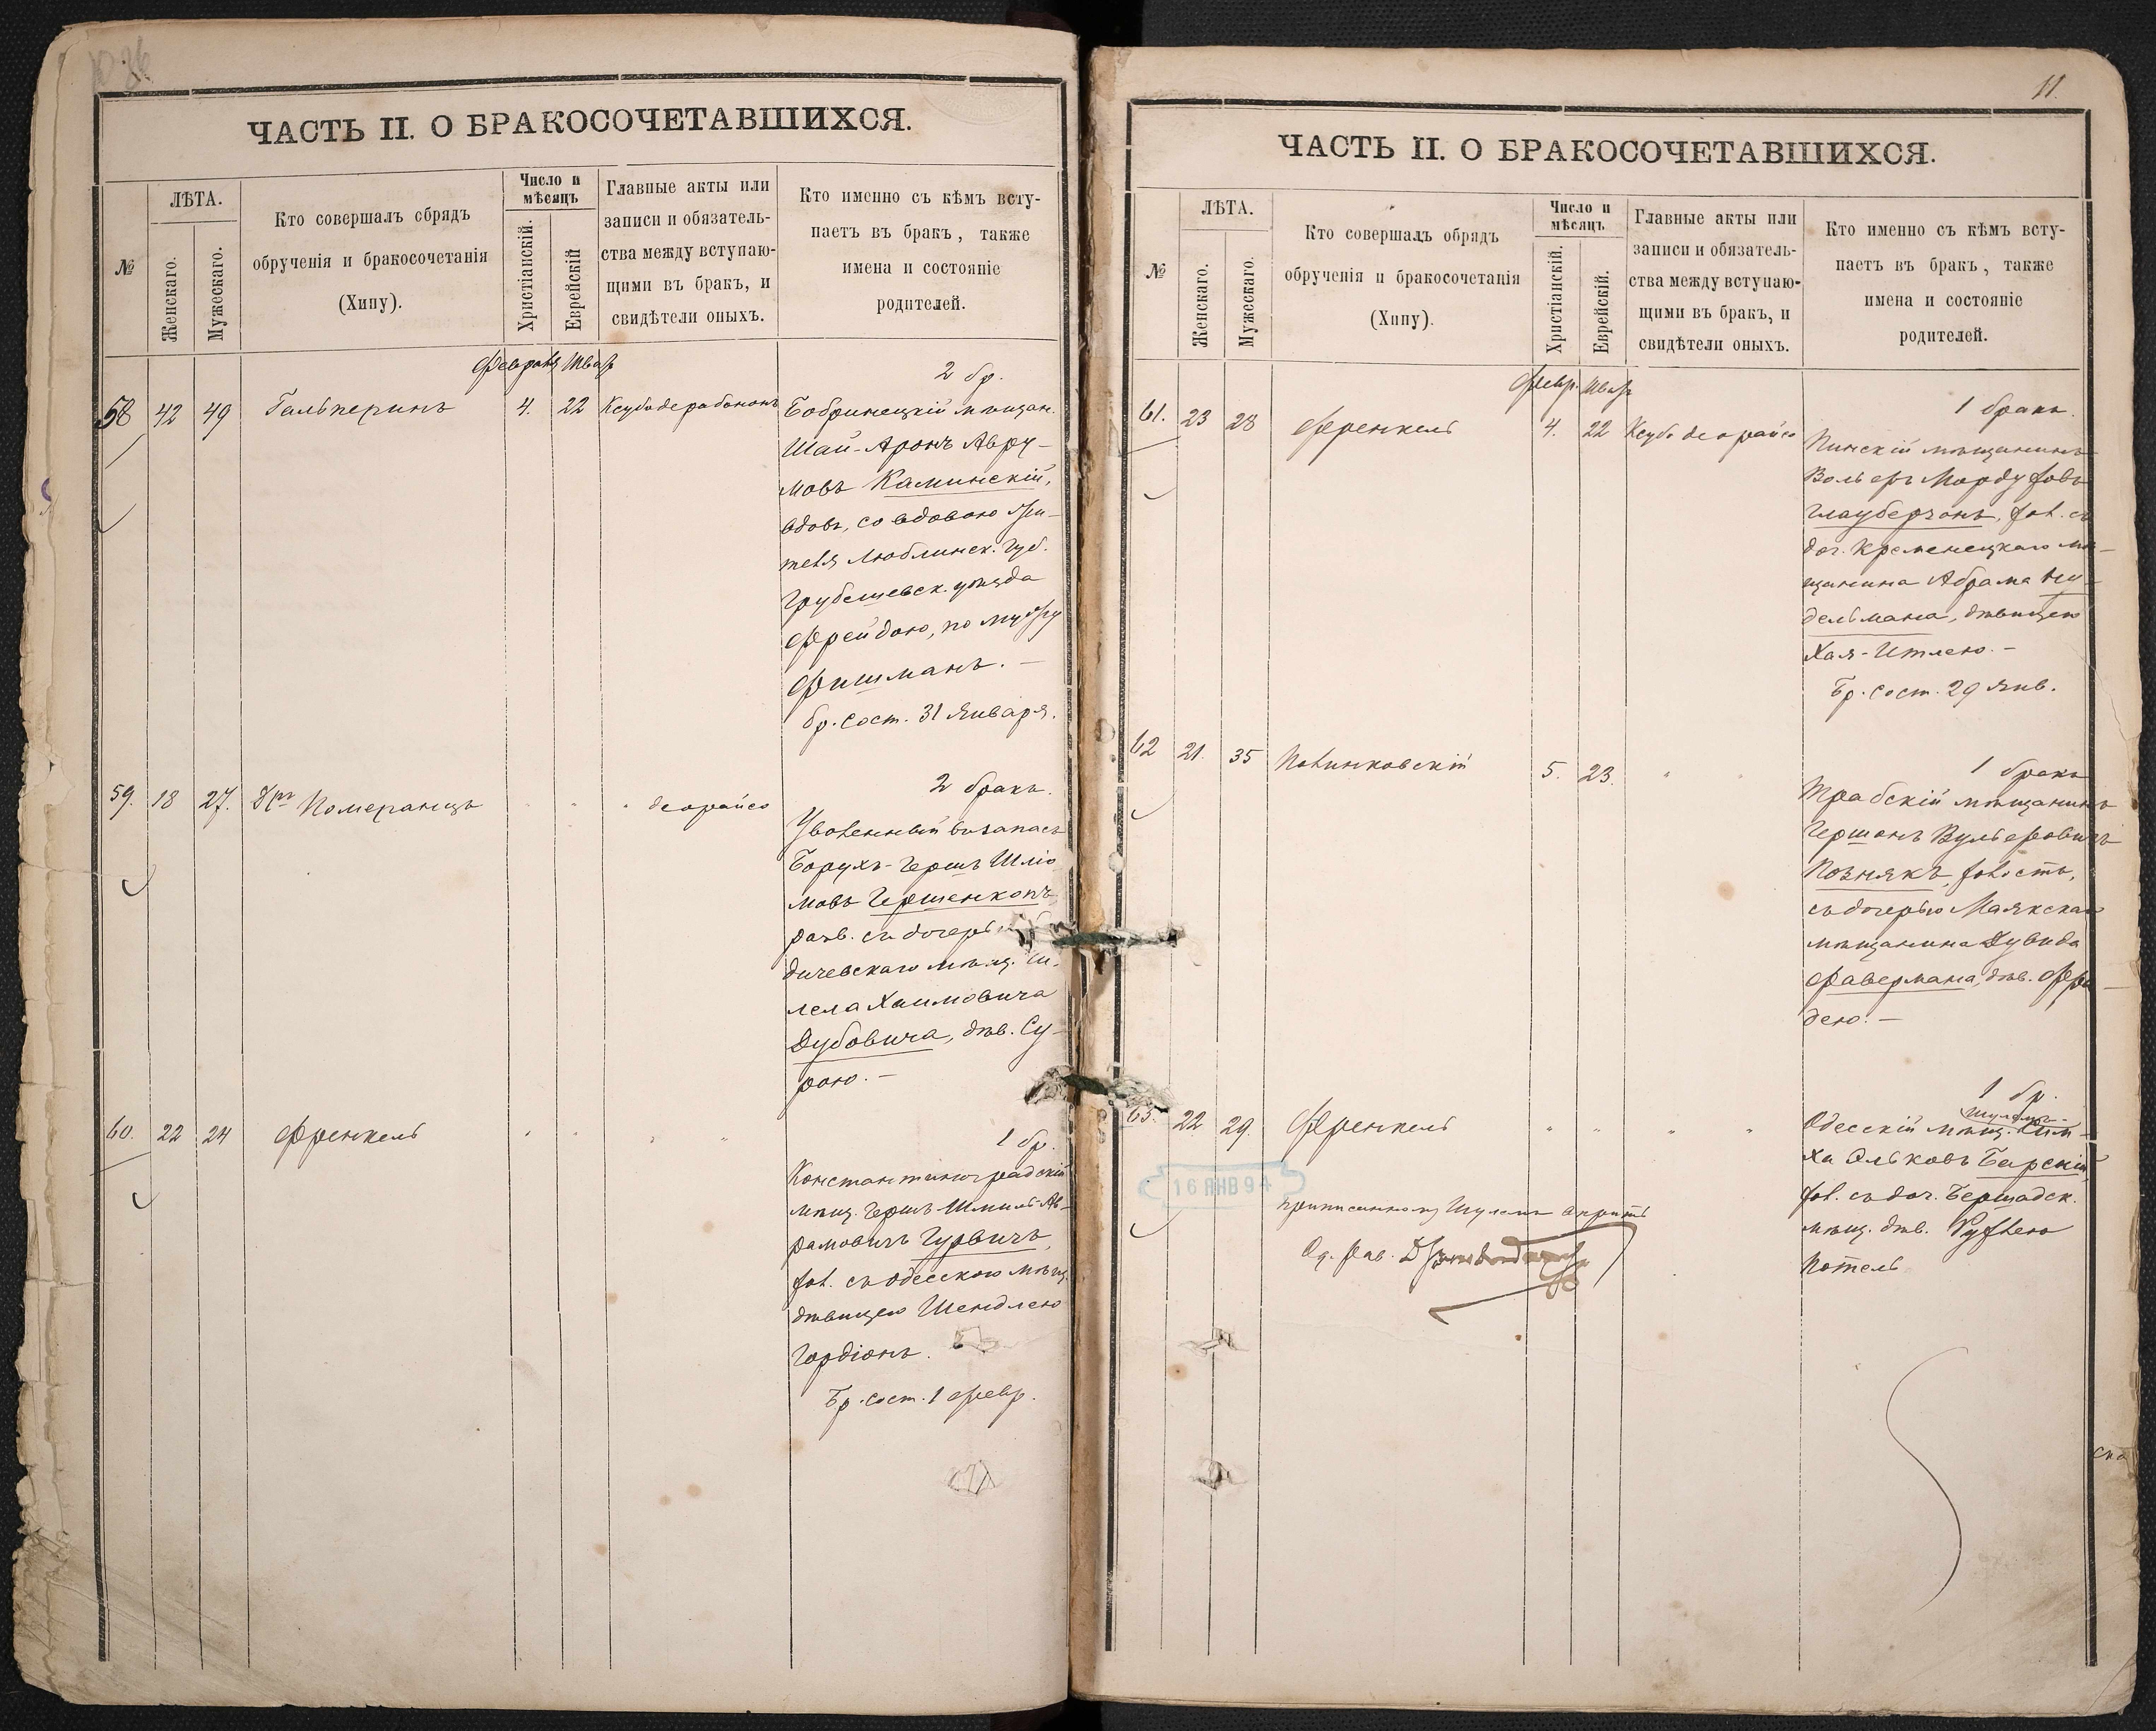 ЧАСТЬ II. О БРАКОСОЧЕТАВШИХСЯ.
№
ЛѢТА.
Женскаго.
Мужескаго.
Кто совершалъ обрядъ
обрученія и бракосочетанія
(Хипу).
Число и
мѣсяцъ
Христіанскій.
Еврейскій
Главные акты или
записи и обязатель-
ства между вступаю-
щими въ бракъ, и
свидѣтели оныхъ.
Кто именно съ кѣмъ всту-
паетъ въ бракъ, также
имена и состояніе
родителей.
Февраля Шват
2 бр.
58 42 49 Гальперинъ 4. 22 Ксубо дерабононъ Бобринецкій мѣщан.
Шая-Аронъ Авру-
мовъ Каминскій,
вдов., со вдовою жи-
теля Люблинск. губ.
Грубешевск. уѣзда
Фрейдою, по мужу
Фишманъ. —
бр. сост. 31 Января.
2 бракъ.
59. 18 27. Померанцъ " " " деорайсо
Уволенный въ запасъ
Борухъ-Гершъ Шліо
мовъ Гершенкопъ,
разв. съ дочерью
дичевскаго мѣщ.
лела Хаимовича
Дубовича, дѣв. Су-
рою. —
1 бр.
60. 22 24 Френкель " " " "
Константиноградскій
мѣщ. Гершъ-Шмиль Ав-
рамовичъ Гурвичъ,
хол. съ одесскою мѣщ.
дѣвицею Шендлею
Гордіонъ.
Бр. сост. 1 Февр.
11.
ЧАСТЬ II. О БРАКОСОЧЕТАВШИХСЯ.
№
ЛѢТА.
Женскаго.
Мужескаго.
Кто совершалъ обрядъ
обрученія и бракосочетанія
(Хипу).
Число и
мѣсяцъ
Христіанскій.
Еврейскій.
Главные акты или
записи и обязатель-
ства между вступаю-
щими въ бракъ, и
свидѣтели оныхъ.
Кто именно съ кѣмъ всту-
паетъ въ бракъ, также
имена и состояніе
родителей.
Февр. Шват
1 бракъ.
61. 23 28 Френкель 4. 22 Ксубо деорайсо
Пинскій мѣщанинъ
Вольфъ Мордуховъ
Глауберзонъ, хол. съ
доч. Кременецкаго мѣ-
щанина Абрама Ну-
дельмана, дѣвицею
Хая-Итлею. —
Бр. сост. 29 Янв.
1 бракъ
62 21. 35 Полинковскій 5. 23. " "
Трабскій мѣщанинъ
Гершонъ Вульфовичъ
Познякъ, холост.,
съ дочерью Маякскаго
мѣщанина Дувида
Фавермана, дѣв. Фра-
дею. —
1 бр.
63. 22 29. Френкель " " " "
Одесскій мѣщ.
ха Эльковъ Барскій,
хол. съ доч. Бершадск.
мѣщ. дѣв. Рухлею
Потель
16 ЯНВ 94
Од. рав.